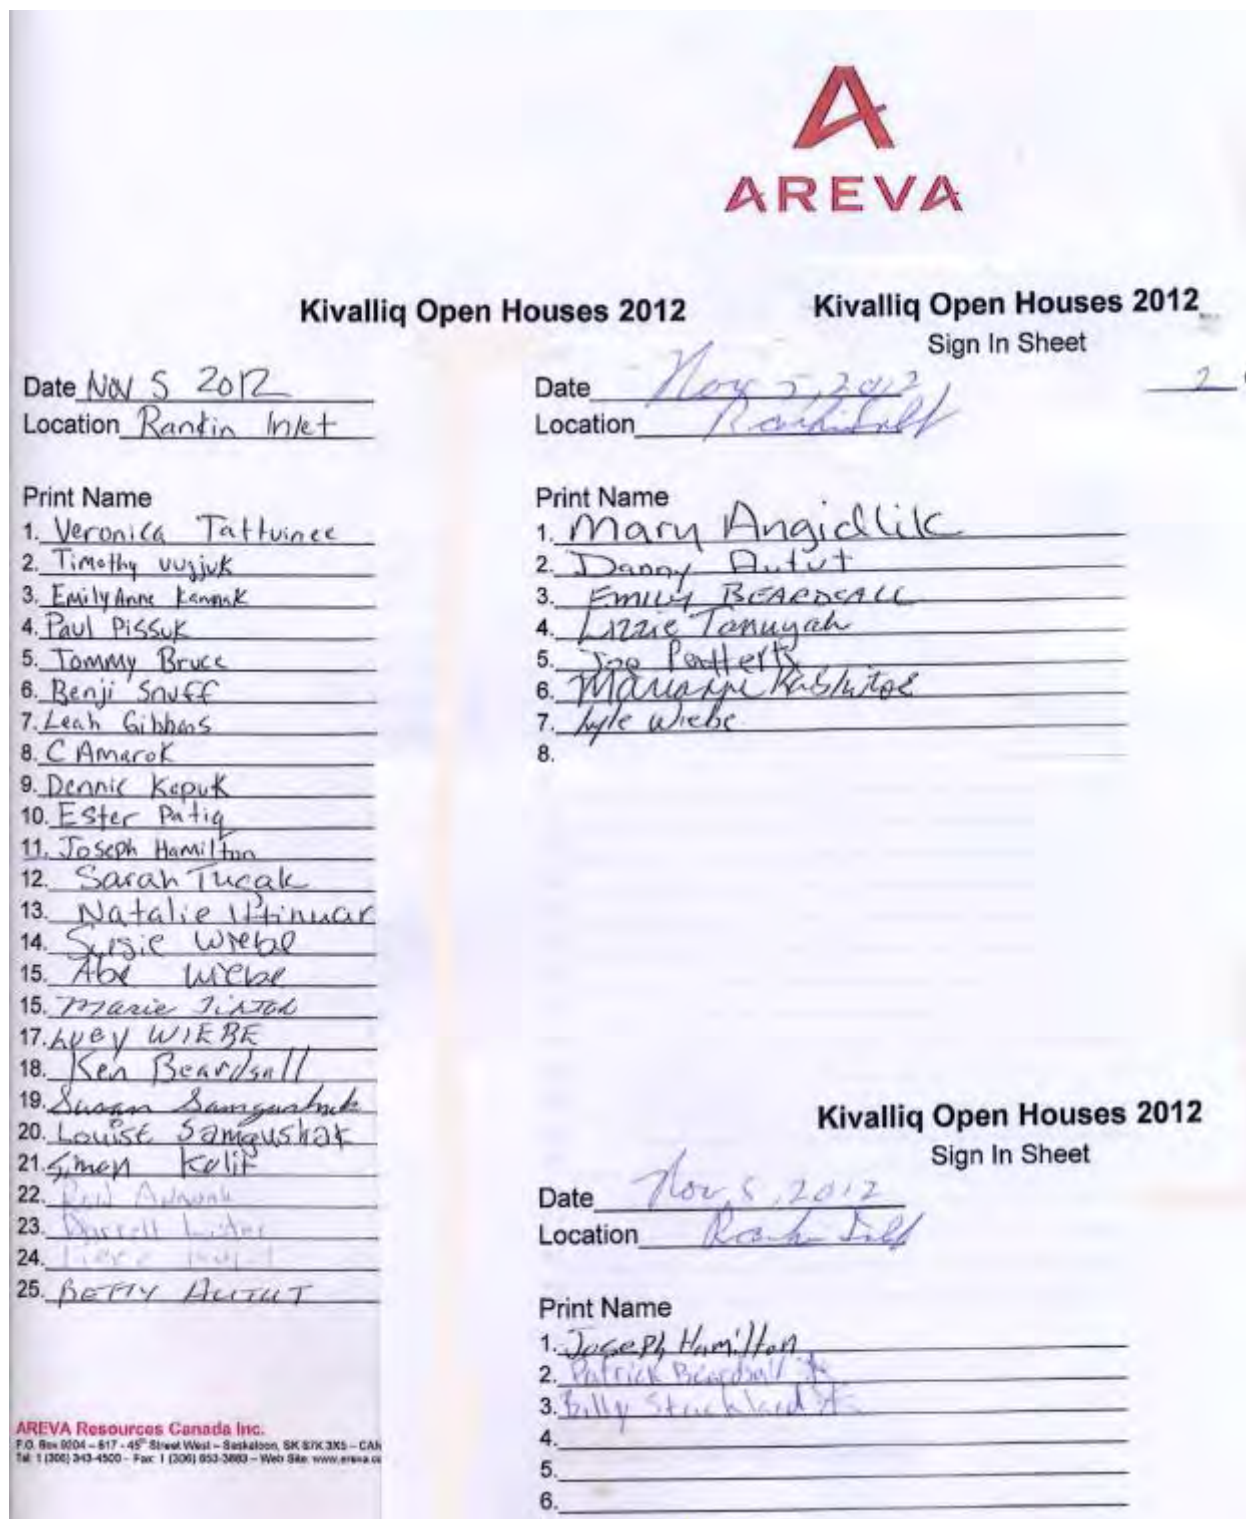 AREVA
Kivalliq Open Houses 2012
Date Nov 5 2012
Location Rankin Inlet
Print Name
1. Veronica Tattuinee
2. Timothy
3. Emily Anne
4. Paul Pissuk
5. Tommy Bruce
6. Benji Snuff
7. Leah Gibbons
8. C Amarok
9. Dennic Kopuk
10. Ester Patiq
11. Joseph Hamilton
12. Sarah Tucak
13. Natalie Uttinuar
14. Susie Wiebe
15. Abe Wiebe
15. Marie
17. WIEBE
18. Ken Beardsall
19. Susan
20. Louise Samgushak
21. Simon Kolit
22.
23. Darrell
24.
25. BETTY AUTUT
AREVA Resources Canada Inc.
P.O. Box 9204 – 817 - 45th Street West – Saskatoon, SK S7K 3X5 – CAN
Tel: 1 (306) 343-4500 – Fax: 1 (306) 653-3883 – Web Site: www.areva.ca
Kivalliq Open Houses 2012
Sign In Sheet
Date Nov 5, 2012
2
Location Rankin Inlet
Print Name
1. Mary Angidlik
2. Danny Autut
3. EMILY BEARDSALL
4. Lizzie Tanuyak
5. Joe
6. Marianne
7. Lyle Wiebe
8.
Kivalliq Open Houses 2012
Sign In Sheet
Date Nov, 5, 2012
Location Rankin Inlet
Print Name
1. Joseph Hamilton
2. Patrick Beardsall
3. Billy
4.
5.
6.